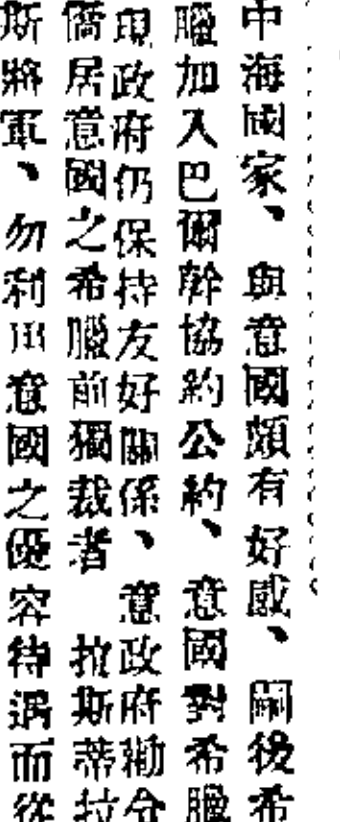 中海國家、與意國頗有好感、嗣後希
臘加入巴爾幹協約公約、意國對希臘
現政府仍保持友好關係、意政府勸令
僑居意國之希臘前獨裁者拉斯蒂拉
斯將軍、勿利用意國之優容待遇而從